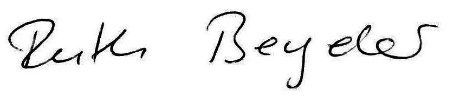 Ruth Beyeler